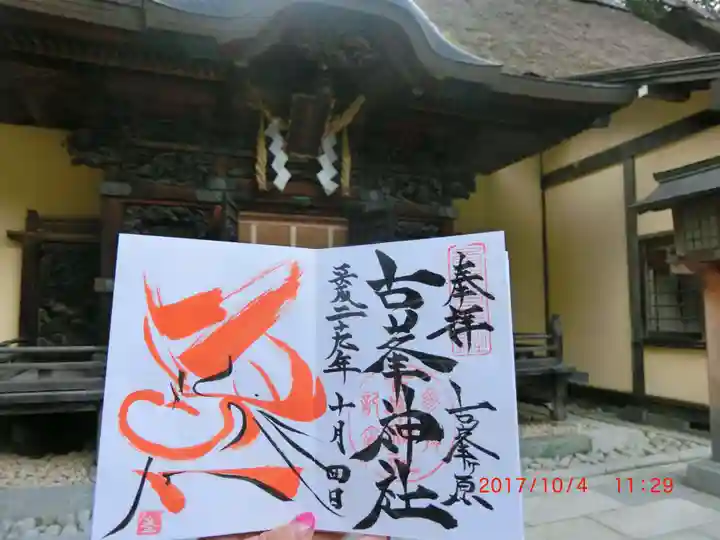 奉拝
古峯ヶ原
古峯神社
平成二十九年
十月四日
2017/10/4 11:29